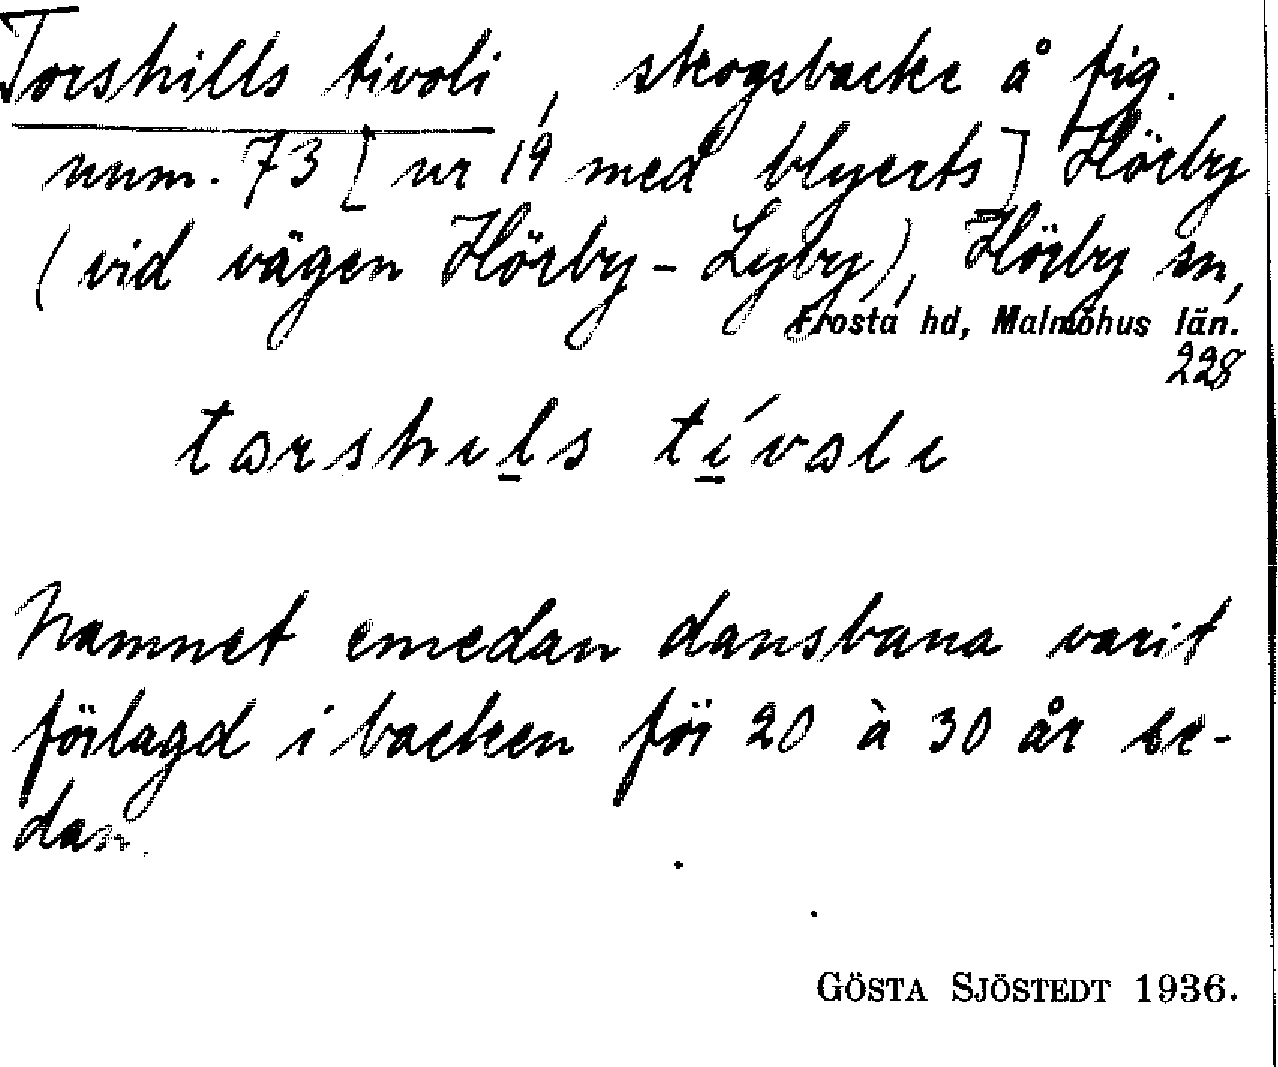 Torshills tivoli, skogsbacke å fig.
num. 73 [nr 19 med blyerts] Hörby
(vid vägen Hörby - Lyby), Hörby sn,
Frosta hd, Malmöhus län.
228
tarshıl̲s tı̲́valı
Namnet emedan dansbana varit
förlagd i backen för 20 à 30 år se-
dan.
GÖSTA SJÖSTEDT 1936.